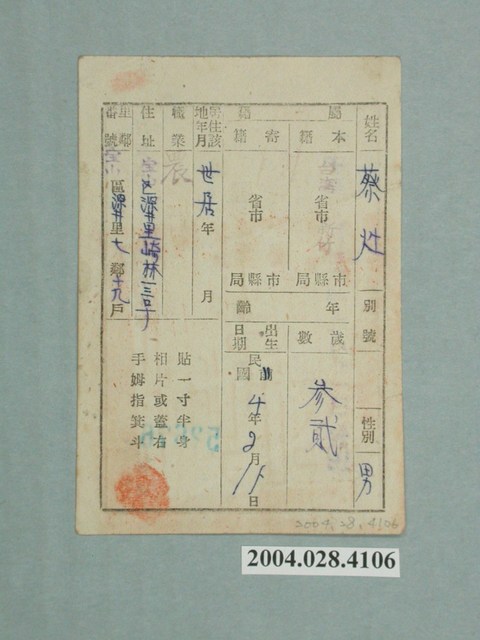 姓名 蔡灶 別號 性別 男
屬 本籍 省市 市縣局 年 歲數 參貳
籍 寄籍 省市 市縣局 齡 出生日期 民國前 4年2月 日
何年月住該地 世居 年 月
職業 農
住址 區源里崎林一三号
里鄰番號 區 里七鄰十九戶
貼一寸半身
相片或蓋右
手姆指箕斗
2004.28.4106
2004.028.4106